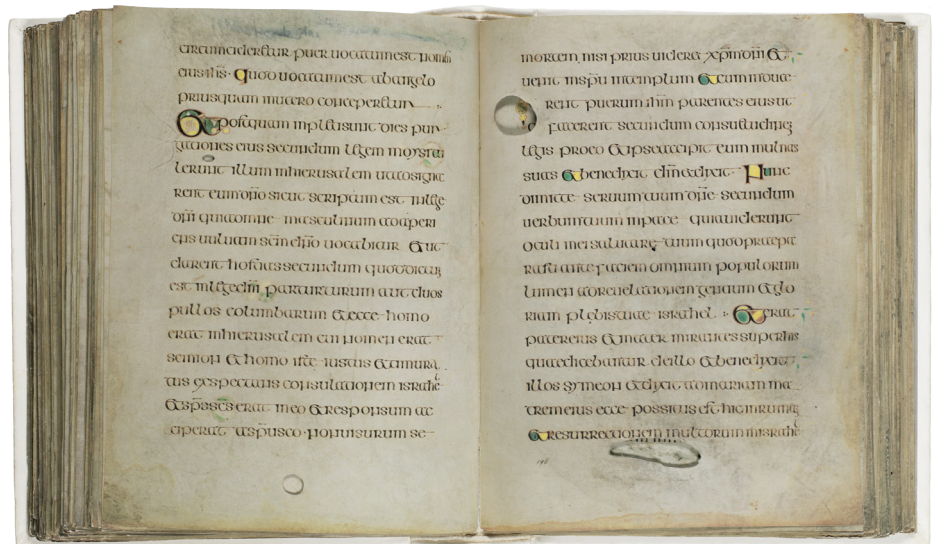 circumcideretur puer uocatum est nomen
eius ihs· quod uocatum est ab angelo
priusquam in utero conciperetur
Et postquam inpleti sunt dies pur
gationis eius secundum legem moysi
lerunt illum in hierusalem ut adsigna
rent eum dno sicut scriptum est in lege
dni quia omne masculinum adaperi
ens uuluam scm dno uocabitur Et ut
darent hostias secundum quod dictum
est in lege dni par turturum aut duos
pullos columbarum Et ecce homo
erat in hierusalem cui nomen erat
semion Et homo iste iustus Et timora
tus expectans consulationem israhel
Et sps scs erat in eo Et responsum ac
ciperat a spu sco· non uisurum se
mortem nisi prius uideret xpm dni Et
uenit in spu in templum Et cum induce
rent puerum ihm parentes eius ut
facerent secundum consuetudinem
legis pro eo Et ipse accipit eum in ulnas
suas Et benedixit dm Et dixit Nunc
dimitte seruum tuum dne secundum
uerbum tuum in pace quia uiderunt
oculi mei salutare tuum quod praepa
rasti ante faciem omnium populorum
lumen ad reuelationem gentium Et glo
riam plebis tuae israhel Et erat
pater eius Et mater mirantes super his
quae dicebantur de illo Et benedixit
illos symeon Et dixit ad mariam ma
trem eius ecce possitus est hic in ruinam
Et resurrectionem multorum in israhel